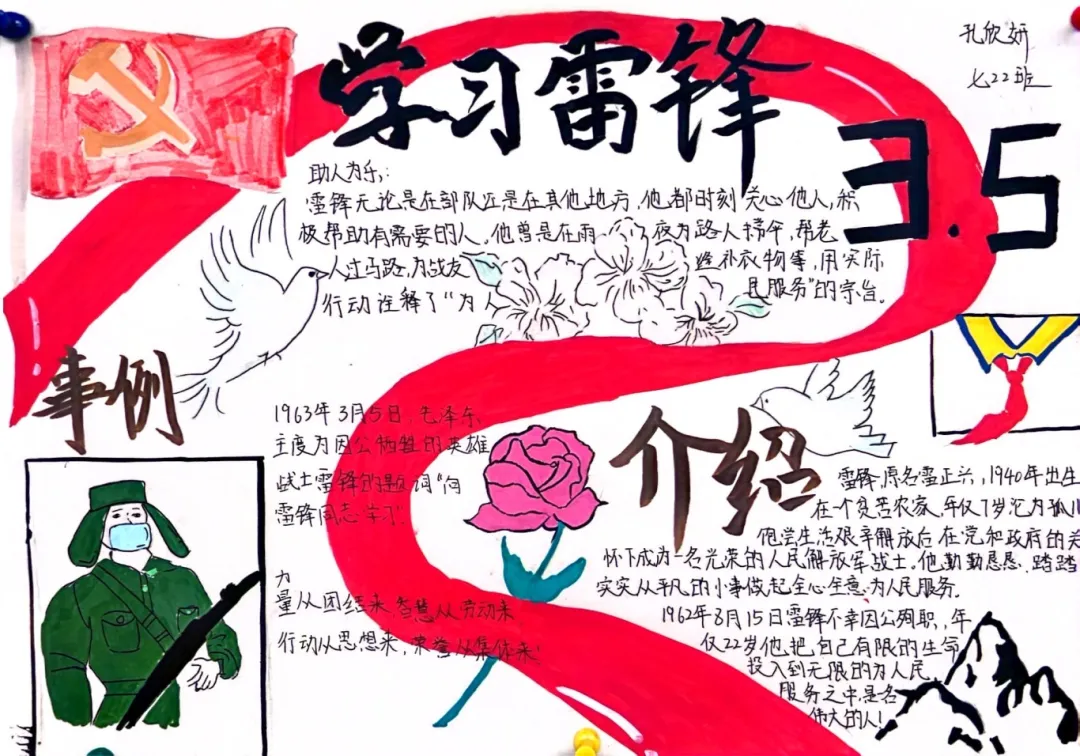 学习雷锋
孔欣妍
七22班
3.5
助人为乐:
雷锋无论是在部队还是在其他地方,他都时刻关心他人,积
极帮助有需要的人。他曾是在雨 夜为路人撑伞,帮老
人过马路,为战友 缝补衣物等,用实际
行动诠释了“为人 民服务”的宗旨。
事例
1963年3月5日,毛泽东
主度为因公牺牲的英雄
战士雷锋的题词“向
雷锋同志学习”
力
量从团结来,智慧从劳动来
行动从思想来,荣誉从集体来!
介绍
雷锋,原名雷正兴,1940年出生
在一个贫苦农家,年仅7岁沦为孤儿
他尝生活艰辛解放后在党和政府的关
怀下成为一名光荣的人民解放军战士。他勤勤恳恳,踏踏
实实从平凡的小事做起全心全意为人民服务。
1962年8月15日雷锋不幸因公殉职,年
仅22岁他把自己有限的生命
投入到无限的为人民
服务之中,是名
伟大的人!